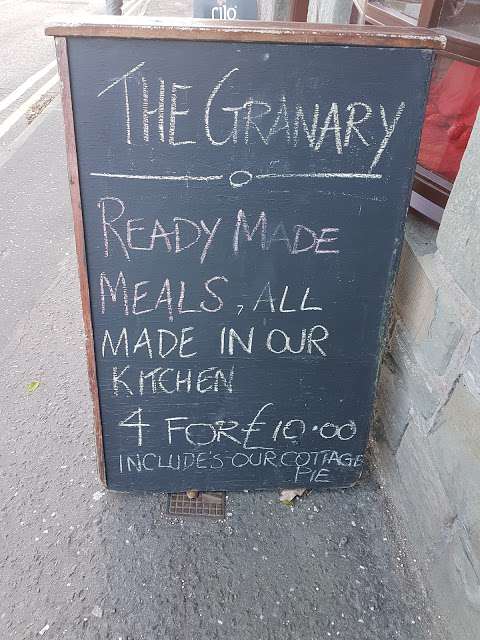 rilo
THE GRANARY
READY MADE
MEALS, ALL
MADE IN OUR
KITCHEN
4 FOR £10.00
INCLUDE'S OUR COTTAGE
PIE